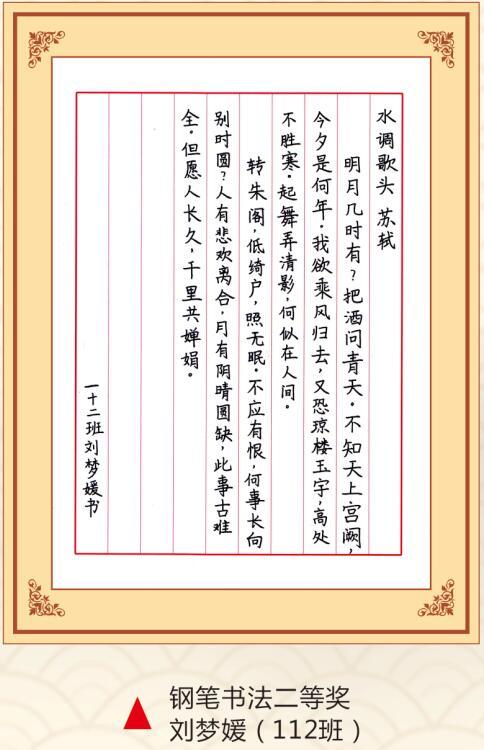 水调歌头 苏轼
明月几时有？把酒问青天。不知天上宫阙，
今夕是何年。我欲乘风归去，又恐琼楼玉宇，高处
不胜寒。起舞弄清影，何似在人间。
转朱阁，低绮户，照无眠。不应有恨，何事长向
别时圆？人有悲欢离合，月有阴晴圆缺，此事古难
全。但愿人长久，千里共婵娟。
一十二班刘梦媛书
钢笔书法二等奖
刘梦媛（112班）